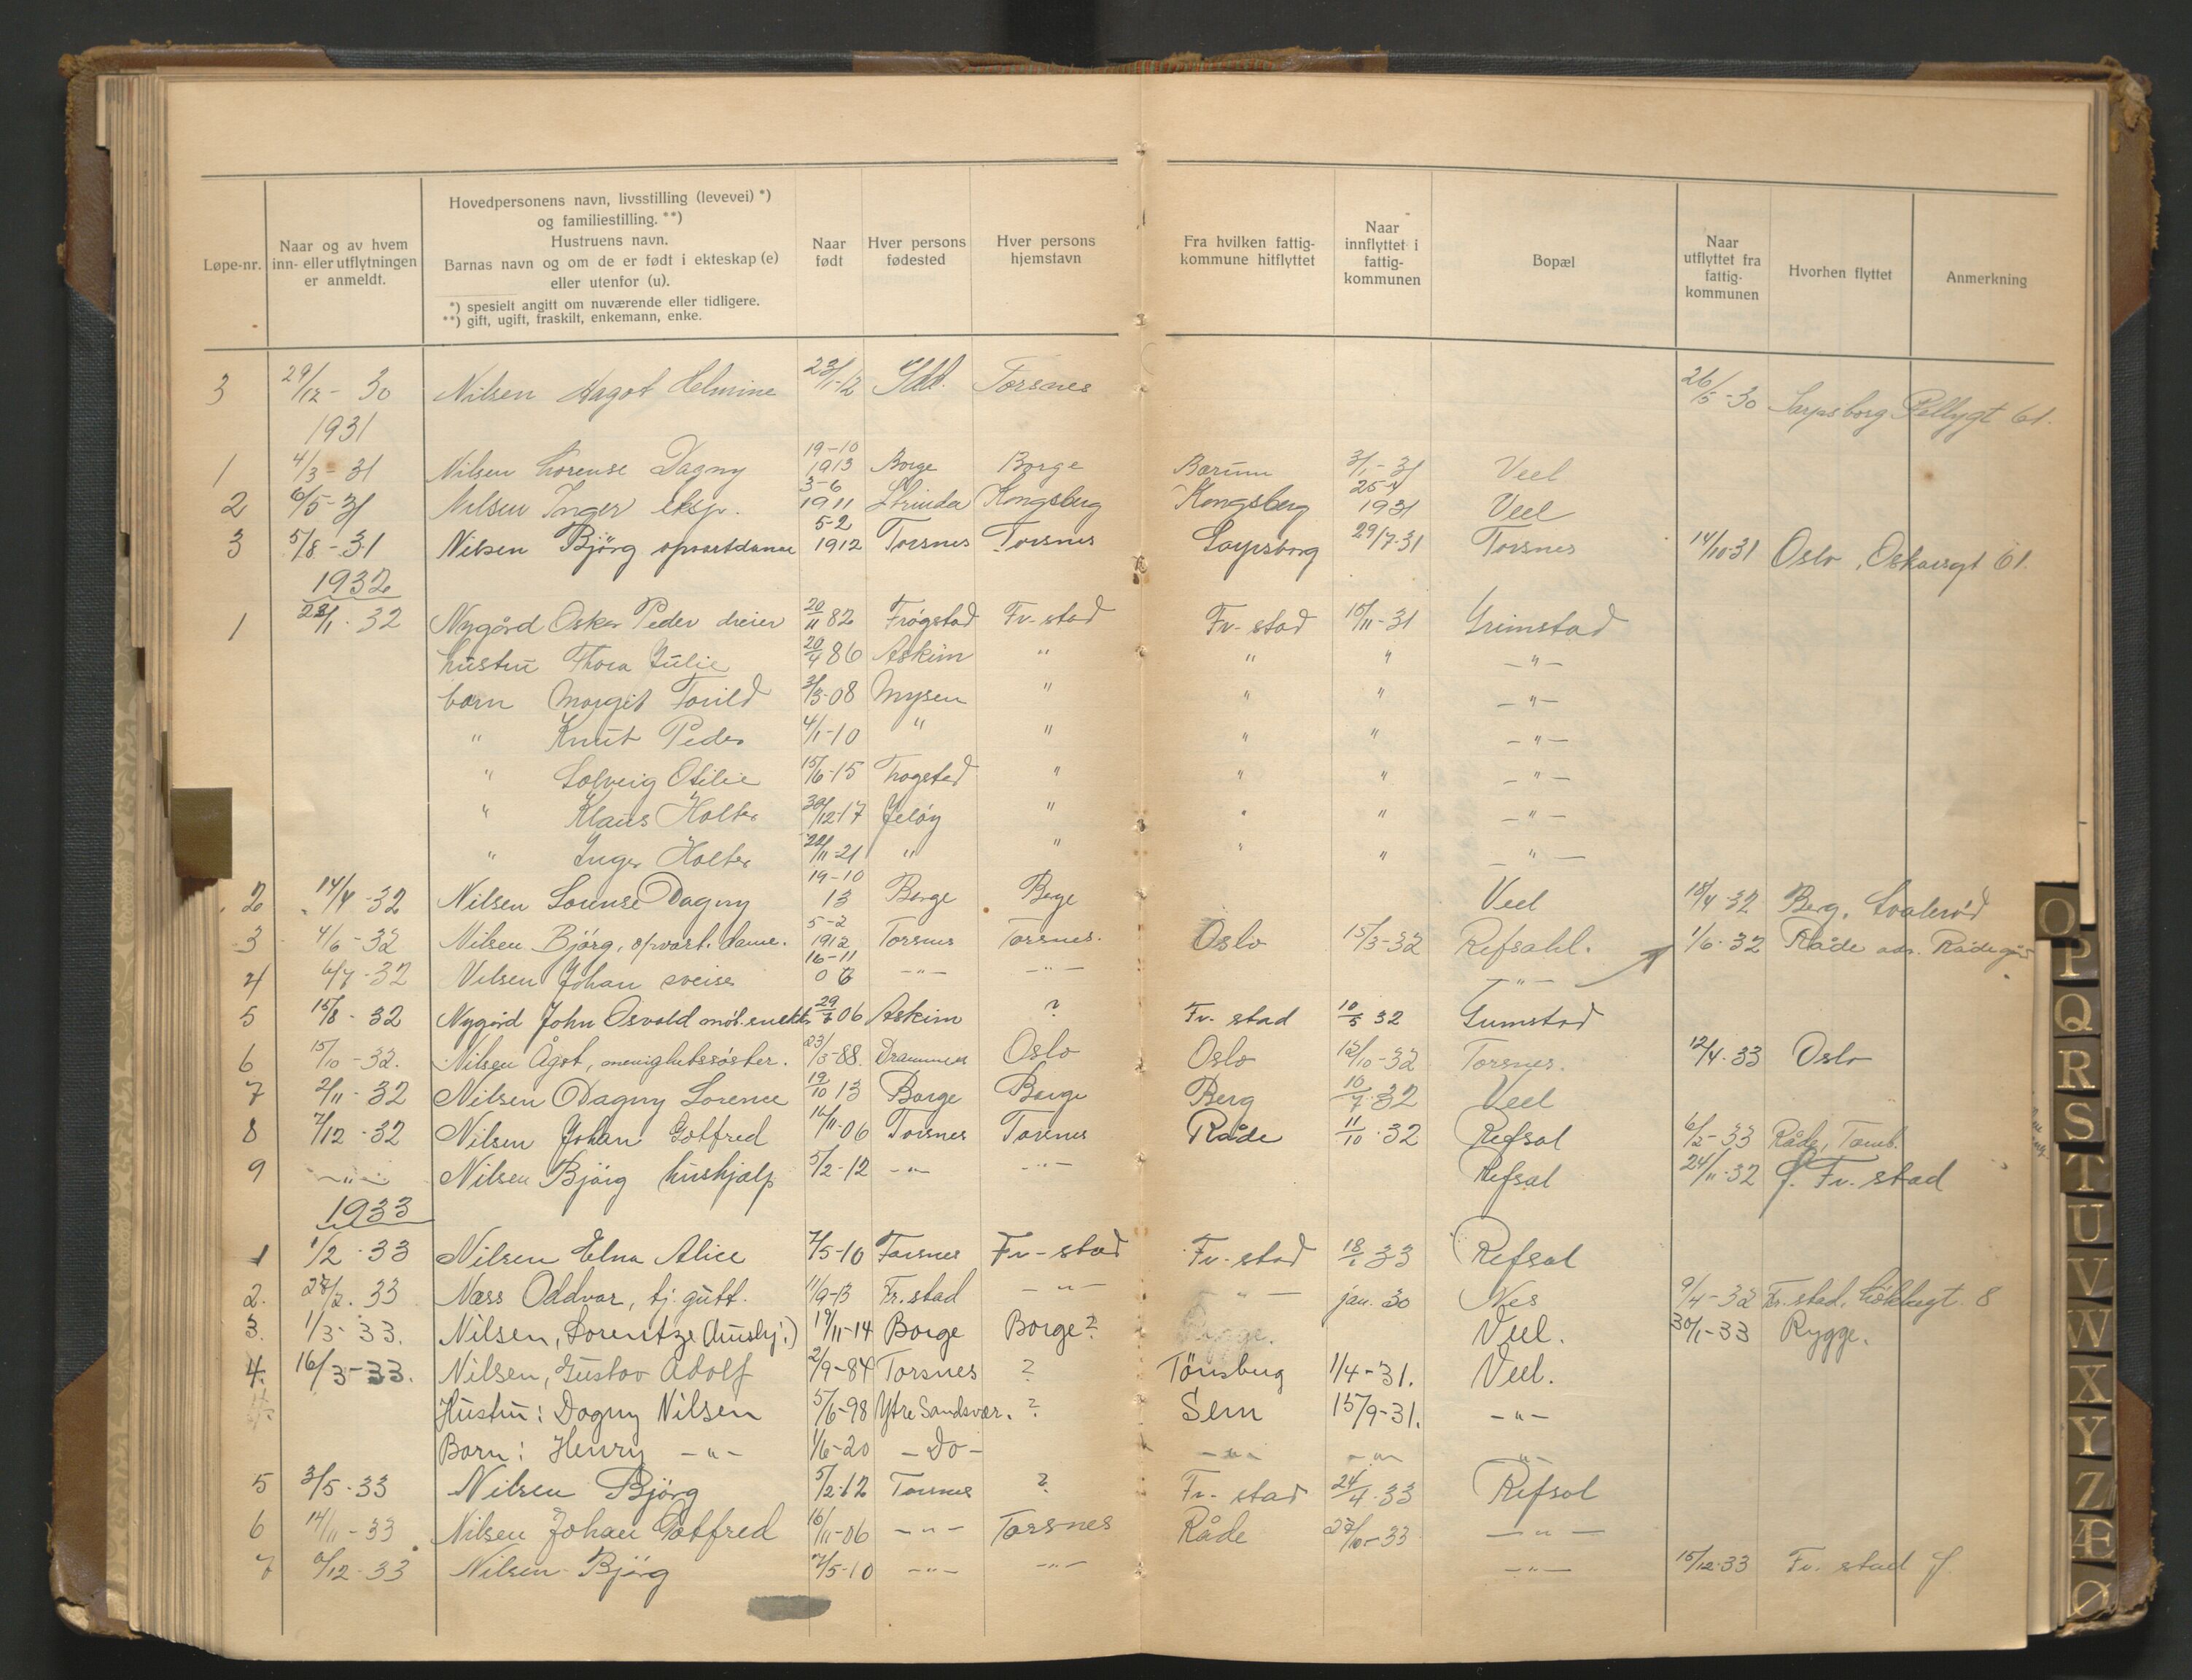 Løpe-nr.
Naar og av hvem inn- eller utflytningen er anmeldt.
Hovedpersonens navn, livsstilling (levevei) *)
og familiestilling. **)
Hustruens navn.
Barnas navn og om de er født i ekteskap (e)
eller utenfor (u).
*) spesielt angitt om nuværende eller tidligere.
**) gift, ugift, fraskilt, enkemann, enke.
Naar født
Hver persons fødested
Hver persons hjemstavn
Fra hvilken fattig-kommune hitflyttet
Naar innflyttet i fattig-kommunen
Bopæl
Naar utflyttet fra fattig-kommunen
Hvorhen flyttet
Anmerkning
3 29/12 - 30 Nilsen Aagot Helmine 23/1-12 Idd. Torsnes 26/5-30 Sarpsborg 61.
1931
1 4/3 - 31 Nilsen Lorense Dagny 19-10 1913 Borge Borge Bærum 3/1-31 Veel
2 6/5-31 Nilsen Inger eksp. 3-6 1911 Strinda Kongsberg Kongsberg 25-4 1931 Veel
3 5/8-31 Nilsen Björg opvartdame 5-2 1912 Torsnes Torsnes Sarpsborg 29/7-31 Torsnes 14/10-31 Oslo, Oskarsgt 61.
1932
1 28/1-32 Nygård Oskar Peder dreier 20/11 82 Trøgstad Fr-stad Fr-stad 10/11-31 Grimstad
hustru Thora Julie 20/4 86 Askim " " " -"-
barn Margit Torild 3/3-08 Mysen " " " -"-
" Knut Peder 4/1-10 " " " " -"-
" Solveig Otilie 15/6-15 Trøgstad " " " -"-
" Klaus Holter 30/12-17 Jeløy " " " -"-
" Inger Holter 22/11-21 " " " " -"-
2 14/4-32 Nilsen Lorense Dagny 19-10 13 Borge Borge Veel 18/4-32 Berg, Svalerød
3 4/6-32 Nilsen Björg, opvart. dame. 5-2 1912 Torsnes Torsnes. Oslo 15/3-32 Refsahl. 1/6-32 Råde adr. Rådegår
4 6/7-32 Nilsen Johan sveiser 16-11 06 -"- -"- -"-
5 15/8-32 Nygård John Osvald møb.snekk. 06 Askim ? Fr. stad 10/5 32 Grimstad
6 15/10-32. Nilsen Ågot, menighetssøster. 23/3-88. Drammen Oslo Oslo 12/10-32 Torsnes. 12/4-33 Oslo
7 2/11-32 Nilsen Dagny Lorence 19/10 13 Borge Borge Berg 10/7-32 Veel
8 7/12-32 Nilsen Johan Gotfred 16/11-06 Torsnes Torsnes Råde 11/10-32 Refsal 6/2-33 Råde, Tomb.
9 -"- Nilsen Björg hushjælp 5/2-12 -"- -"- Refsal 24/11-32 f. Fr. stad
1933
1 1/2-33 Nilsen Elna Alice 7/5-10 Torsnes Fr-stad Fr-stad 18/1 33 Refsal
2. 27/2. 33 Næss Oddvar, tj. gutt. 11/9-13 Fr.stad -"- -"- jan. 30 Nes 9/4-32 Fr.stad, 8
3. 1/3-33. Nilsen, Lorentze (hushj.) 19/11-14 Borge Borge? Rygge. Veel. 30/1-33 Rygge.
4. 16/3-33. Nilsen, Gustav Adolf 2/9-84 Torsnes ? Tönsberg 1/4-31. Veel.
Hustru: Dagny Nilsen 5/6-98 Ytre Sandsvær. ? Sem 15/9-31. -"-
Barn: Henry -"- 1/6-20 -Do- -"- -"- -"-
5 3/5-33 Nilsen Björg 5/2-12 Torsnes ? Fr-stad 24/4-33 Refsal
6 14/11-33 Nilsen Johan Gotfred 16/11-06 -"- Torsnes Råde 27/10-33 -"-
7 6/12-33 Nilsen Björg 7/5-10 -"- -"- -"- 15/12-33 Fr. stad f.
O
P
Q
R
S
T
U
V
W
X
Y
Z
Æ
Ø